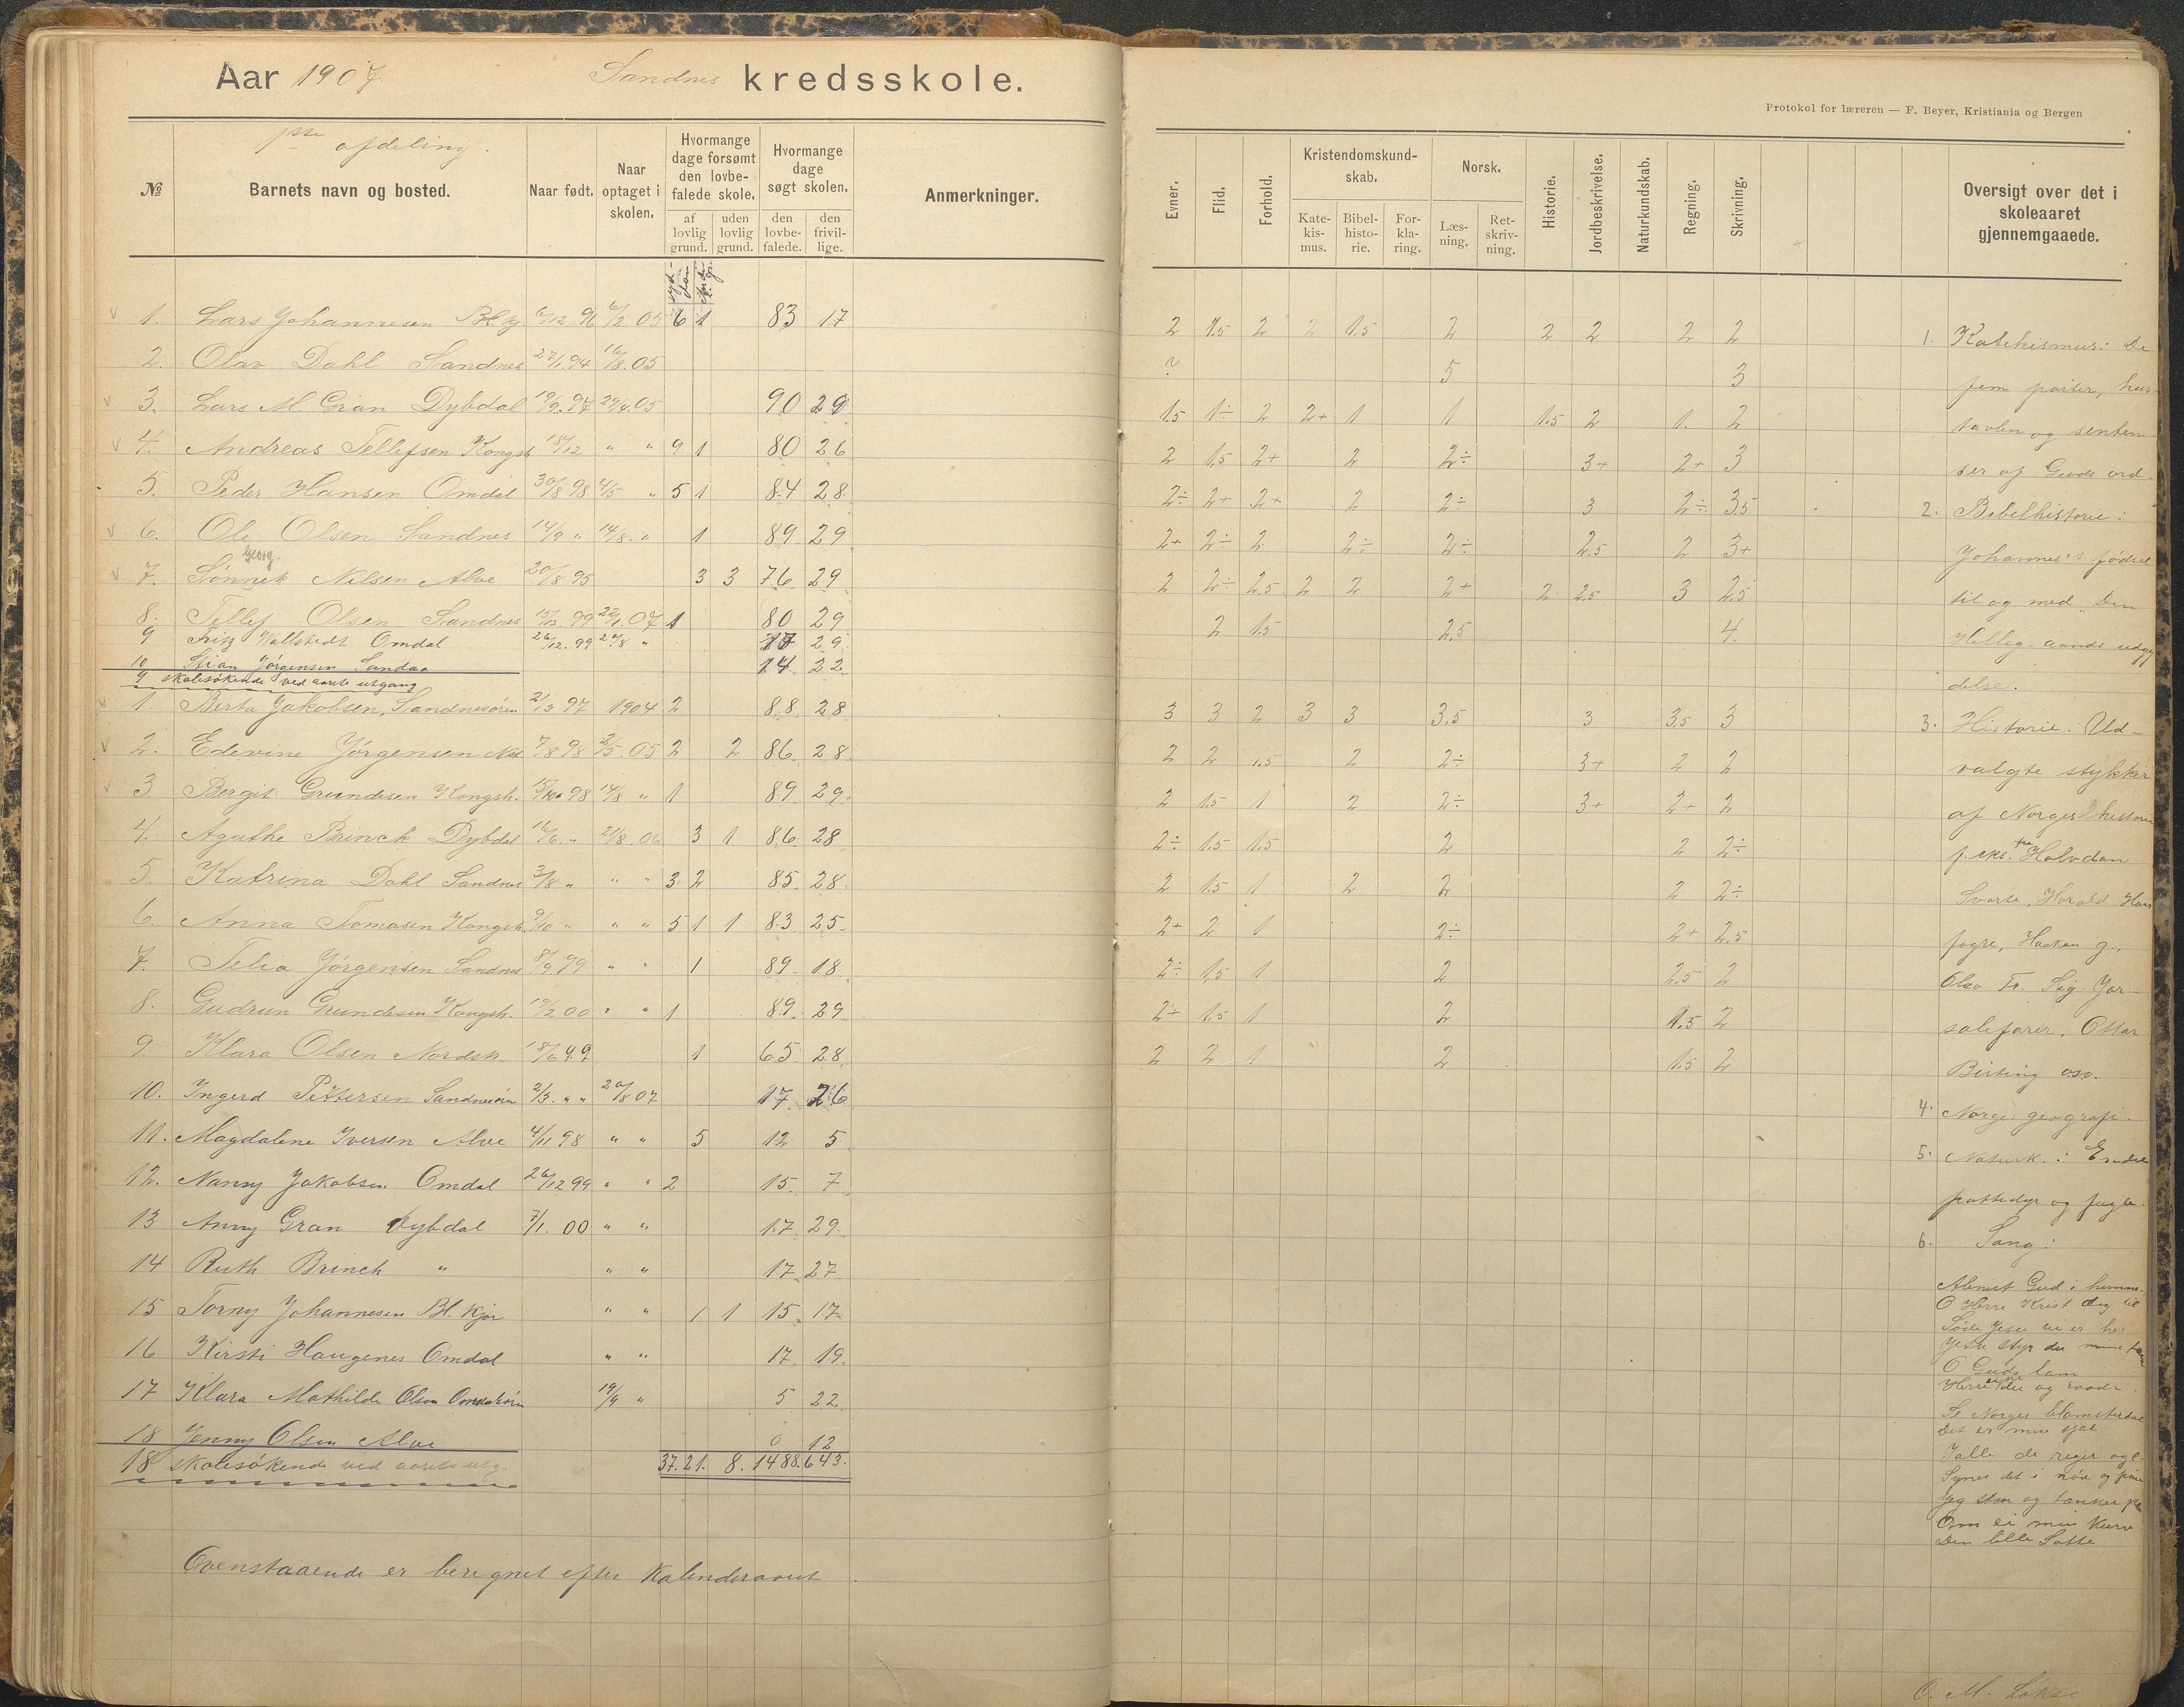 Aar 1907 Sandnes kredsskole.
Protokol for læreren — F. Beyer, Kristiania og Bergen
1ste afdeling.
№
Barnets navn og bosted.
Naar født.
Naar optaget i skolen.
Hvormange dage forsømt den lovbefalede skole.
af lovlig grund.
uden lovlig grund.
Hvormange dage søgt skolen.
den lovbefalede.
den frivillige.
Anmerkninger.
1. Lars Johannesen Bl.kj. 6/12 96 6/2 05 6 1 83 17
2. Olav Dahl Sandnes 27/1.94 16/8.05
3. Lars M. Gran Dybdal 19/9.97 29/4.05 90 29
4. Andreas Tellefsen Kongsh 18/12 " " 9 1 80 26
5. Peder Hansen Omdal 30/8 98 4/5 " 5 1 84 28
6. Ole Olsen Sandnes 14/9 " 14/8. " 1 89 29
Georg.
7. Sønnik Nilsen Alve 20/8 95 3 3 76 29
8. Tellef Olsen Sandnes 99 22/1.07 1 80 29
9 Fritz Wallstedt Omdal 26/12.99 20/8 " 17 29
10 Stian Jørgensen Sandaa 14 22
9 skolesøkende ved aarets utgang
1. Berta Jakobsen, Sandnesøren 2/3 97 1904 2 88 28
2. Edevine Jørgensen 7/8 98 2/5.05 2 2 86 28
3 Bergit Grundesen Kongsh. 15/10 98 14/8 " 1 89 29
4. Agathe Brinck Dybdal 16/6. " 21/8.06 3 1 86 28
5. Katrina Dahl Sandnes 3/8 " " " 3 2 85 28
6. Anna Tomasen Kongsh. 9/10 " " " 5 1 1 83 25
7. Telia Jørgensen Sandnes 8/9 99 " " 1 89 18
8. Gudrun Grundesen Kongsh. 19/2 00 " " 1 89 29
9. Klara Olsen Nordsk. 18/6 99. 1 65 28
10. Ingerd Pettersen Sandnesøren 2/3. " " 20/8 07 17 26
11. Magdalene Iversen Alve 4/11 98 " " 5 12 5
12. Nanny Jakobsen Omdal 26/12 99 " " 2 15 7
13 Anny Gran Dybdal 7/1.00 " " 17 29
14 Ruth Brinch " " " 17 27
15 Torny Johannesen Bl. kjør " " 1 1 15 17
16 Kirsti Haugenes Omdal " " 17 19
17 Klara Mathilde Olsen Omdaløren 19/9 " 5 22
18 Jenny Olsen Alve 0 12
18 skolesøkende ved aarets utg. 37. 21. 8. 1488. 643.
Ovenstaaende er beregnet efter kalenderaaret.
Evner.
Flid.
Forhold.
Kristendomskundskab.
Katekismus.
Bibelhistorie.
Forklaring.
Norsk.
Læsning.
Retskrivning.
Historie.
Jordbeskrivelse.
Naturkundskab.
Regning.
Skrivning.
Oversigt over det i skoleaaret gjennemgaaede.
2 1.5 2 2 1.5 2 2 2 2 2
? 5 3
1.5 1÷ 2 2+ 1 1 1.5 2 1. 2
2 1.5 2+ 2 2÷ 3+ 2+ 3
2÷ 2+ 2+ 2 2÷ 3 2÷ 3.5
2+ 2÷ 2 2÷ 2÷ 2.5 2 3+
2 2÷ 2.5 2 2 2+ 2 2.5 3 2.5
2 1.5 2.5 4.
3 3 2 3 3 3.5 3 3.5 3
2 2 1.5 2 2÷ 3+ 2 2
2 1.5 1 2 2÷ 3+ 2+ 2
2÷ 1.5 1.5 2 2 2÷
2 1.5 1 2 2 2 2÷
2+ 2 1 2÷ 2+ 2.5
2÷ 1.5 1 2 2.5 2
2+ 1.5 1 2 1.5 2
2 2 1 2 1.5 2
1. Katekismus: De
fem parter, hus-
tavlen og senten-
ser af Guds ord.
2. Bibelhistorie:
Johannes's fødsel
til og med "Den
Hellig-aands udgy
delse.
3. Historie: Ud-
valgte stykker
af Norgeshistorie
f. eks. fra Halvdan
Svarte, Harald Haar
fagre, Haakon g.,
Olav Tr. Sig. Jor-
salefarer, Ottar
Birting osv.
4. Norges geografi.
5. Naturk.: Endel
pattedyr og fugle.
6. Sang:
Alenest Gud i himme.
O Herre Krist dig til
Søde Jesu vi er her
Jesu styr du mine tan
O Guds lam
Se Norges blomsterdal
Det er min sjæl
I alle de riger og l.
Synes det i nød og
Jeg stod og tænker på
Om ei min kurv
Den lille Lotte
O. M.